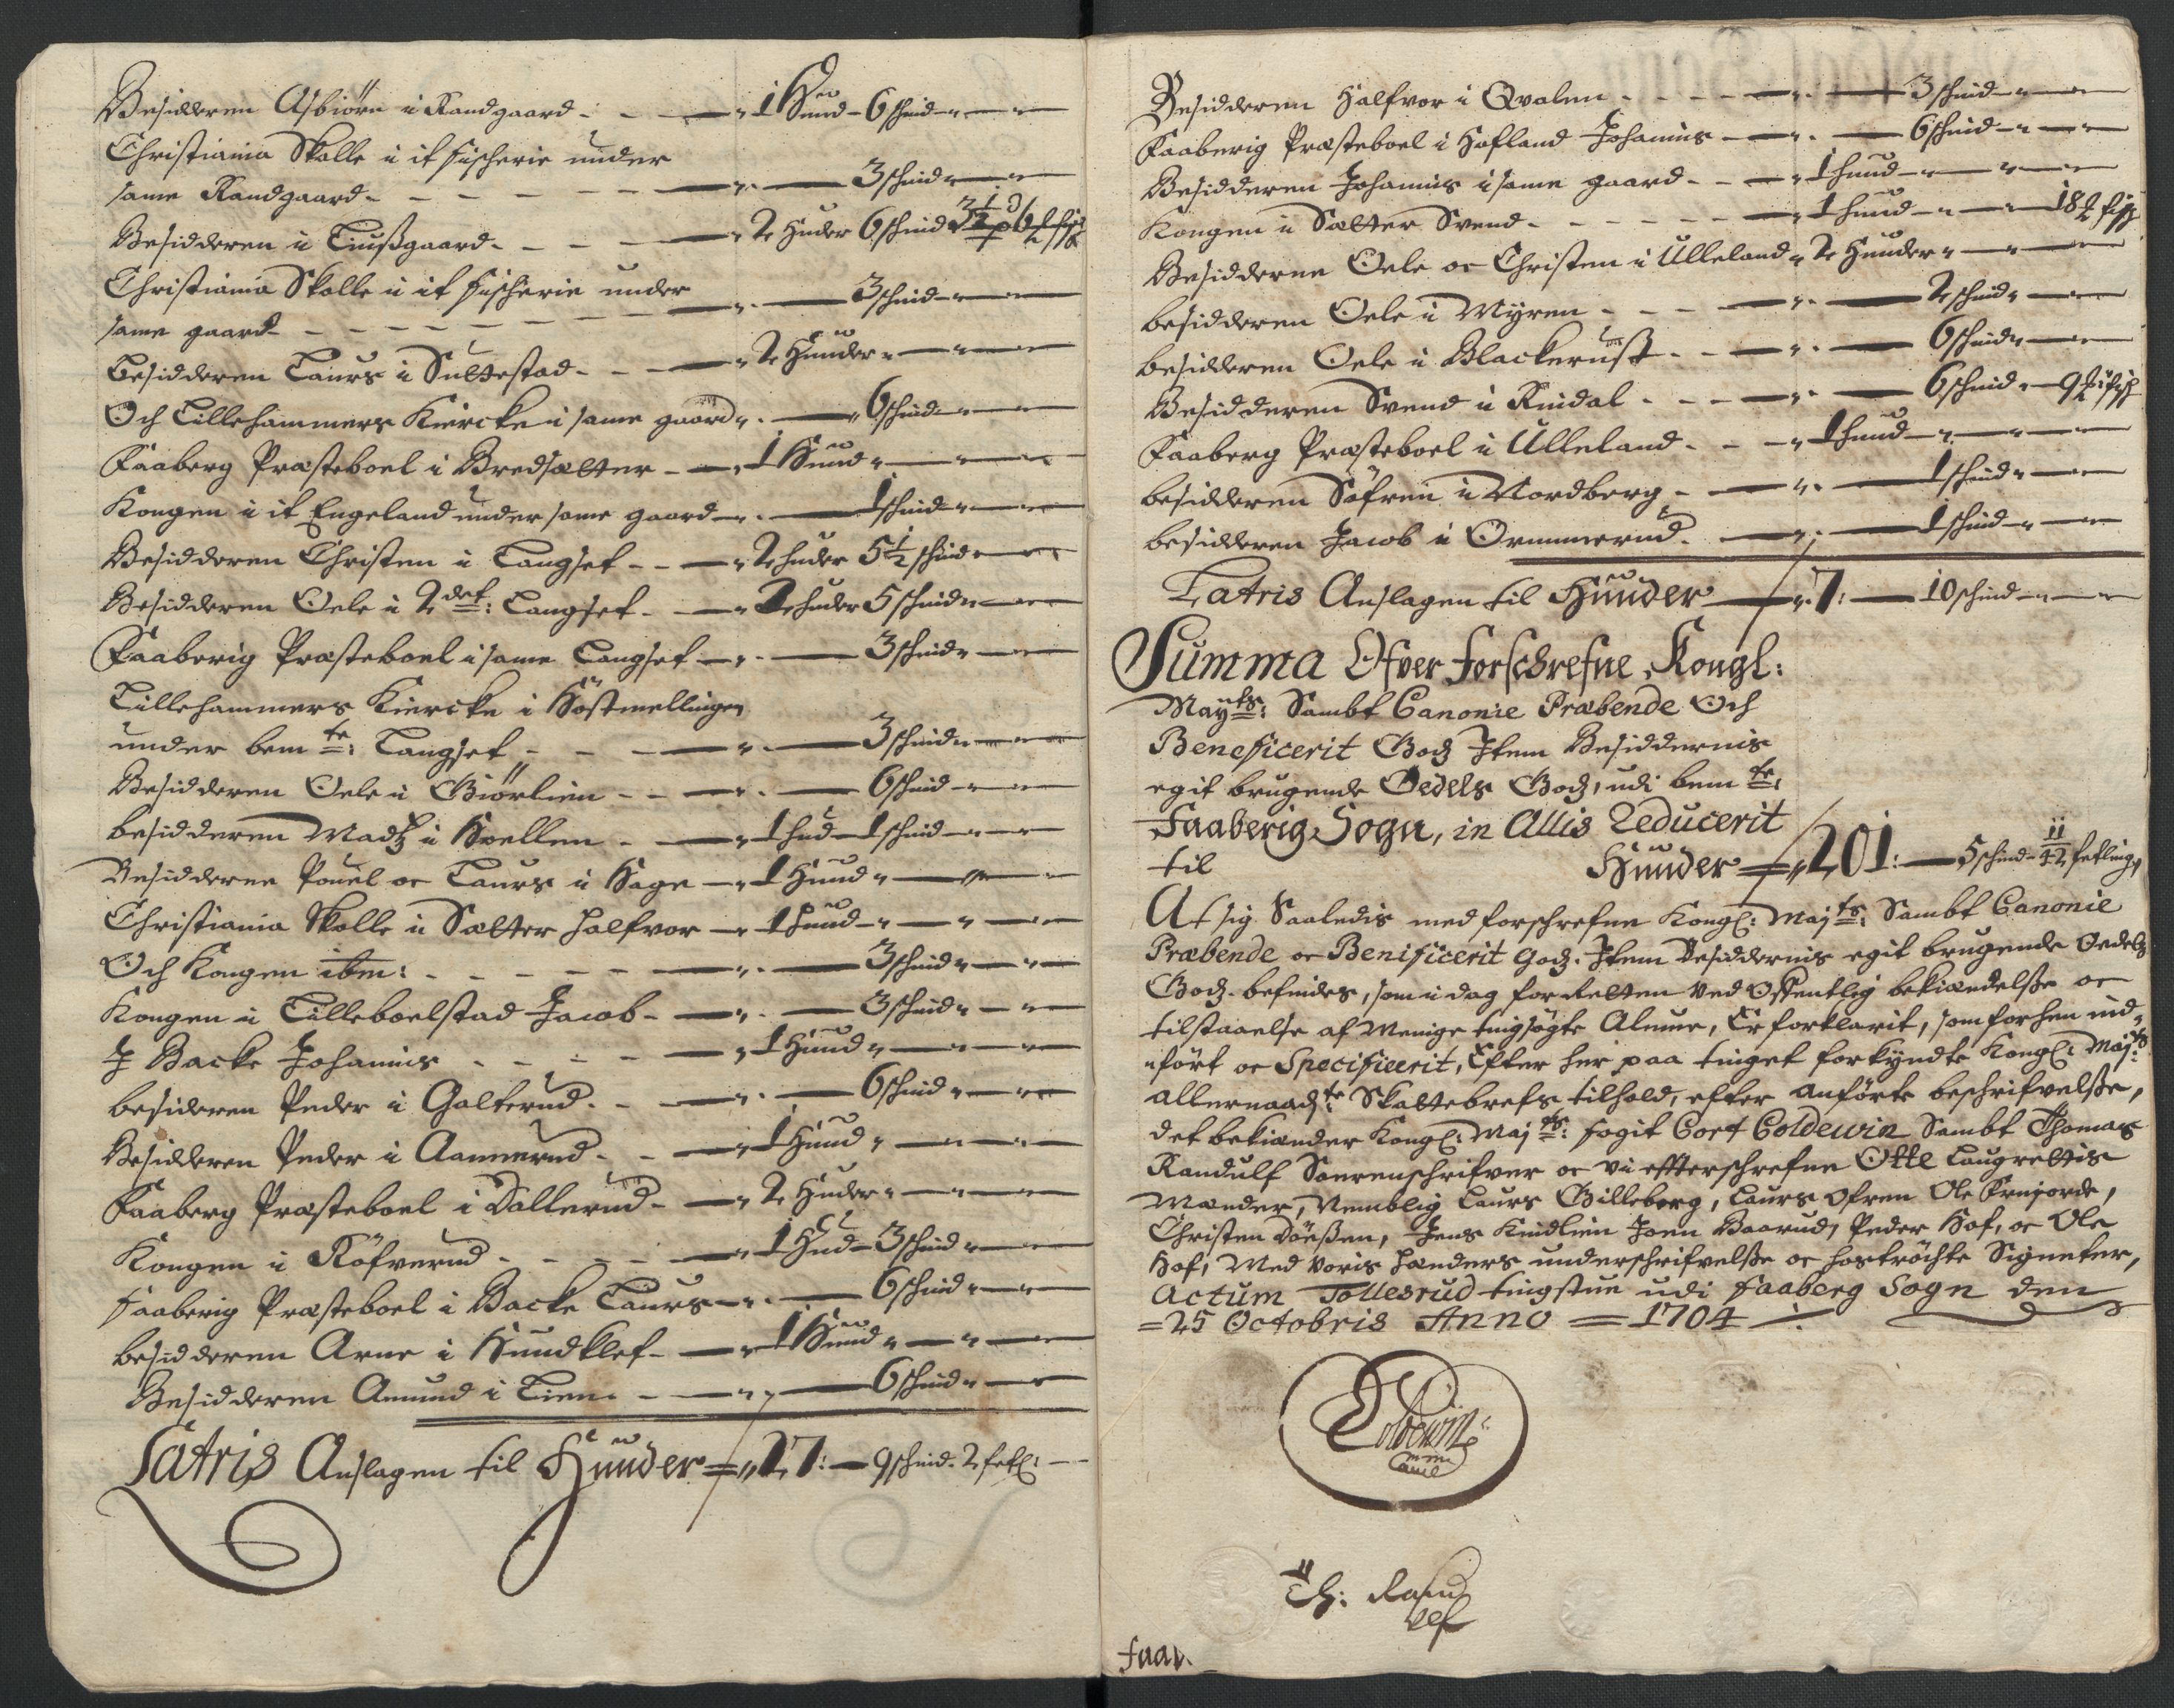 Besidderen Asbiörn i Randgaard - - - 1 Hund - 6 schind
Christiania Skolle i it fischerie under
same Randgaard - - - 3 schind
Besidderen i Liußgaard - - - 2 Huder 6 schind
Christiania Skolle i it fischerie under
same gaard - - - 3 schind
Besidderen Laurs i Sultestad - - 2 Hunder
Och Lillehammers Kiercke i same gaard - 6 schind
Faaberg Præsteboel i Bredsætter - 1 Hund
Kongen i it Engeland under same gaard - 1 schind
Besidderen Christen i Langset - - 2 huder 5½ schind
Besidderen Oele i 2 det: Langset - 2 huder 5 schind
Faaberig Præsteboel i same Langset - 3 schind
Lillehammers Kiercke i Höstmellingen
under bem te: Langset - - 3 schind
Besidderen Oele i Giörlien - - 6 schind
besidderen Madz i Hoellen - 1 hud - 1 schind
Besidderne Pouel oc Laurs i Hage - 1 Hund
Christiania Skolle i Sætter Halfvor - 1 hund
Och Kongen ibm: - - - 3 schind
Kongen i Lilleboelstad Jacob - 3 schind
J Backe Johannis - - - 1 Hund
besideren Peder i Galterud - - 6 schind
Besidderen Peder i Aannerud - - 1 Hund
Faaberg Præsteboel i Dallerud - 2 Huder
Kongen i Röfverud - - - 1 Hud - 3 schind
faaberig Præsteboel i Backe Laurs - 6 schind
besidderen Arne i Hundklef - 1 Hund
Besidderen Amund i Lien - - 6 schind
Latris Anslagen til Hunder = 27: - 9 schind. 2 fetl:
Besidderen Halfvor i Qvalen - - - 3 schind
Faaberig Præsteboel i Hofland Johannis - 6 schind
Besidderen Johannis i same gaard - - 1 hund
Kongen i Sætter Svend - - - 1 hund - 18
Besidderne Oele oc Christen i Ulleland 2 Hunder
besidderen Oele i Myren - - - 2 schind
besidderen Oele i Blackerust - - 6 schind
Besidderen Svend i Rindal - - - 6 schind - 9
Faaberg Præsteboel i Ulleland - - 1 hund
besidderen Söfren i Nordberg - 1 schind
besidderen Jacob i Orummerud - 1 schind
Latris Anslagen til Hunder - 7: - 10 schind
Summa Ofver forschrefne Kongl:
Mayts: Sambt Canonie Præbende Och
Beneficerit Godz Item Besiddernis
egit brugende Oedels Godz, udi bem te:
Faaberig Sogn, in Allis Reducerit
til Hunder = 201: - 5 schind - 11/42 fetling
At sig Saaledis med forschrefne Kongl: Majts: Sambt Canonie
Præbende oc Benificerit Godz. Item Besiddernis egit brugende Oedels
Godz. befindes, som i dag for Retten ved Offentlig bekiændelsse oc
tilstaaelse af Menige tingsögte Almue, Er forklarit, som forhen ind-
fört oc Specificerit, Efter her paa tinget forkyndte Kongl: Majts:
allernaadte: Skattebrefs tilhold, efter anförte beschrifvelsse,
det bekiænder Kongl: Majts: fogit Cort Coldewin Sambt Thomas
Randulf Sorenschrifver oc vi eftterschrefne Otte Laugrettis
Mænder, Nemblig Laurs Gilleberg, Laurs Ofren Ole
Christen Döeßen, Jens Kindlien Joen Baarud, Peder Hof, oc Ole
Hof, Med voris hænders underschrifvelsse oc hoströchte Signeter,
Actum Tollesrud tingstue udi faaberg Sogn den
=25 Octobris Anno = 1704
Coldewin
Th: Randulf
faab.